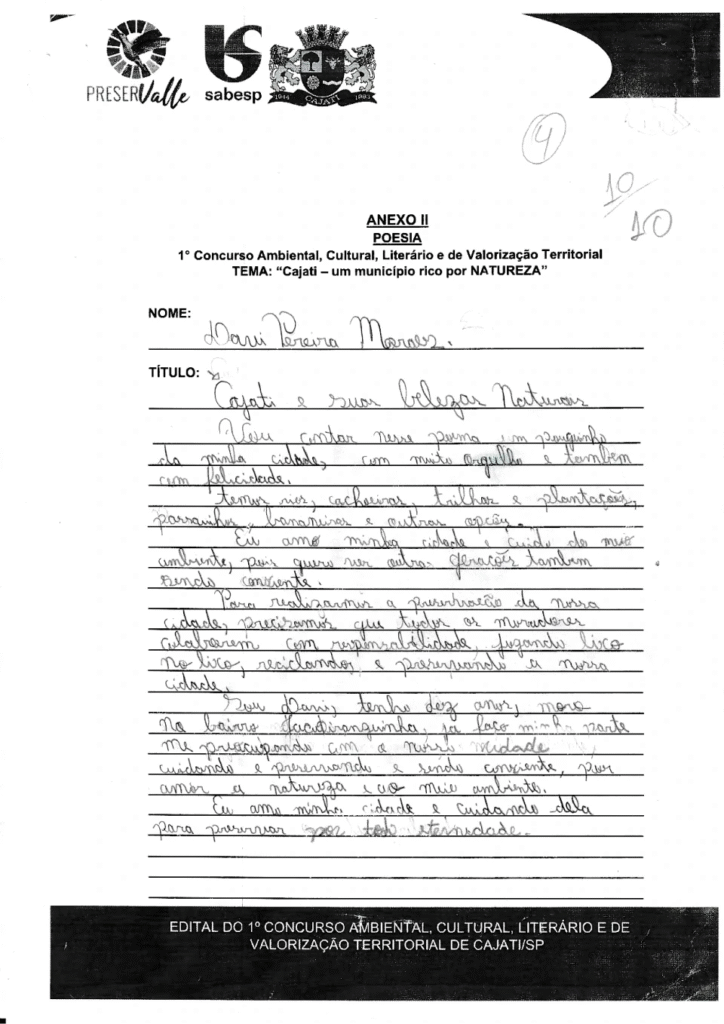 PRESERValle
sabesp
1944 CAJATI 1993
4
10/10
ANEXO II
POESIA
1° Concurso Ambiental, Cultural, Literário e de Valorização Territorial
TEMA: “Cajati – um município rico por NATUREZA”
NOME:
Davi Pereira Moraes.
TÍTULO:
Cajati e suas belezas Naturais
Vou contar nesse poema um pouquinho
da minha cidade, com muito orgulho e também
com felicidade.
temos rios, cachoeiras, trilhas e plantações,
passarinhos, bananeiras e outras opções.
Eu amo minha cidade e cuido do meio
ambiente, pois quero ver outras gerações também
sendo consiente.
Para realizarmos a preservação da nossa
cidade, precisamos que todos os moradores
colaborem com responsabilidade, jogando lixo
no lixo, reciclando, e preservando a nossa
cidade.
Sou Davi, tenho dez anos, moro
no bairro Jacupiranguinha, já faço minha parte
me preocupando com a nossa cidade
cuidando e preservando e sendo consiente, por
amor a natureza e ao meio ambiente.
Eu amo minha cidade e cuidando dela
para preservar por toda eternidade.
EDITAL DO 1º CONCURSO AMBIENTAL, CULTURAL, LITERÁRIO E DE
VALORIZAÇÃO TERRITORIAL DE CAJATI/SP